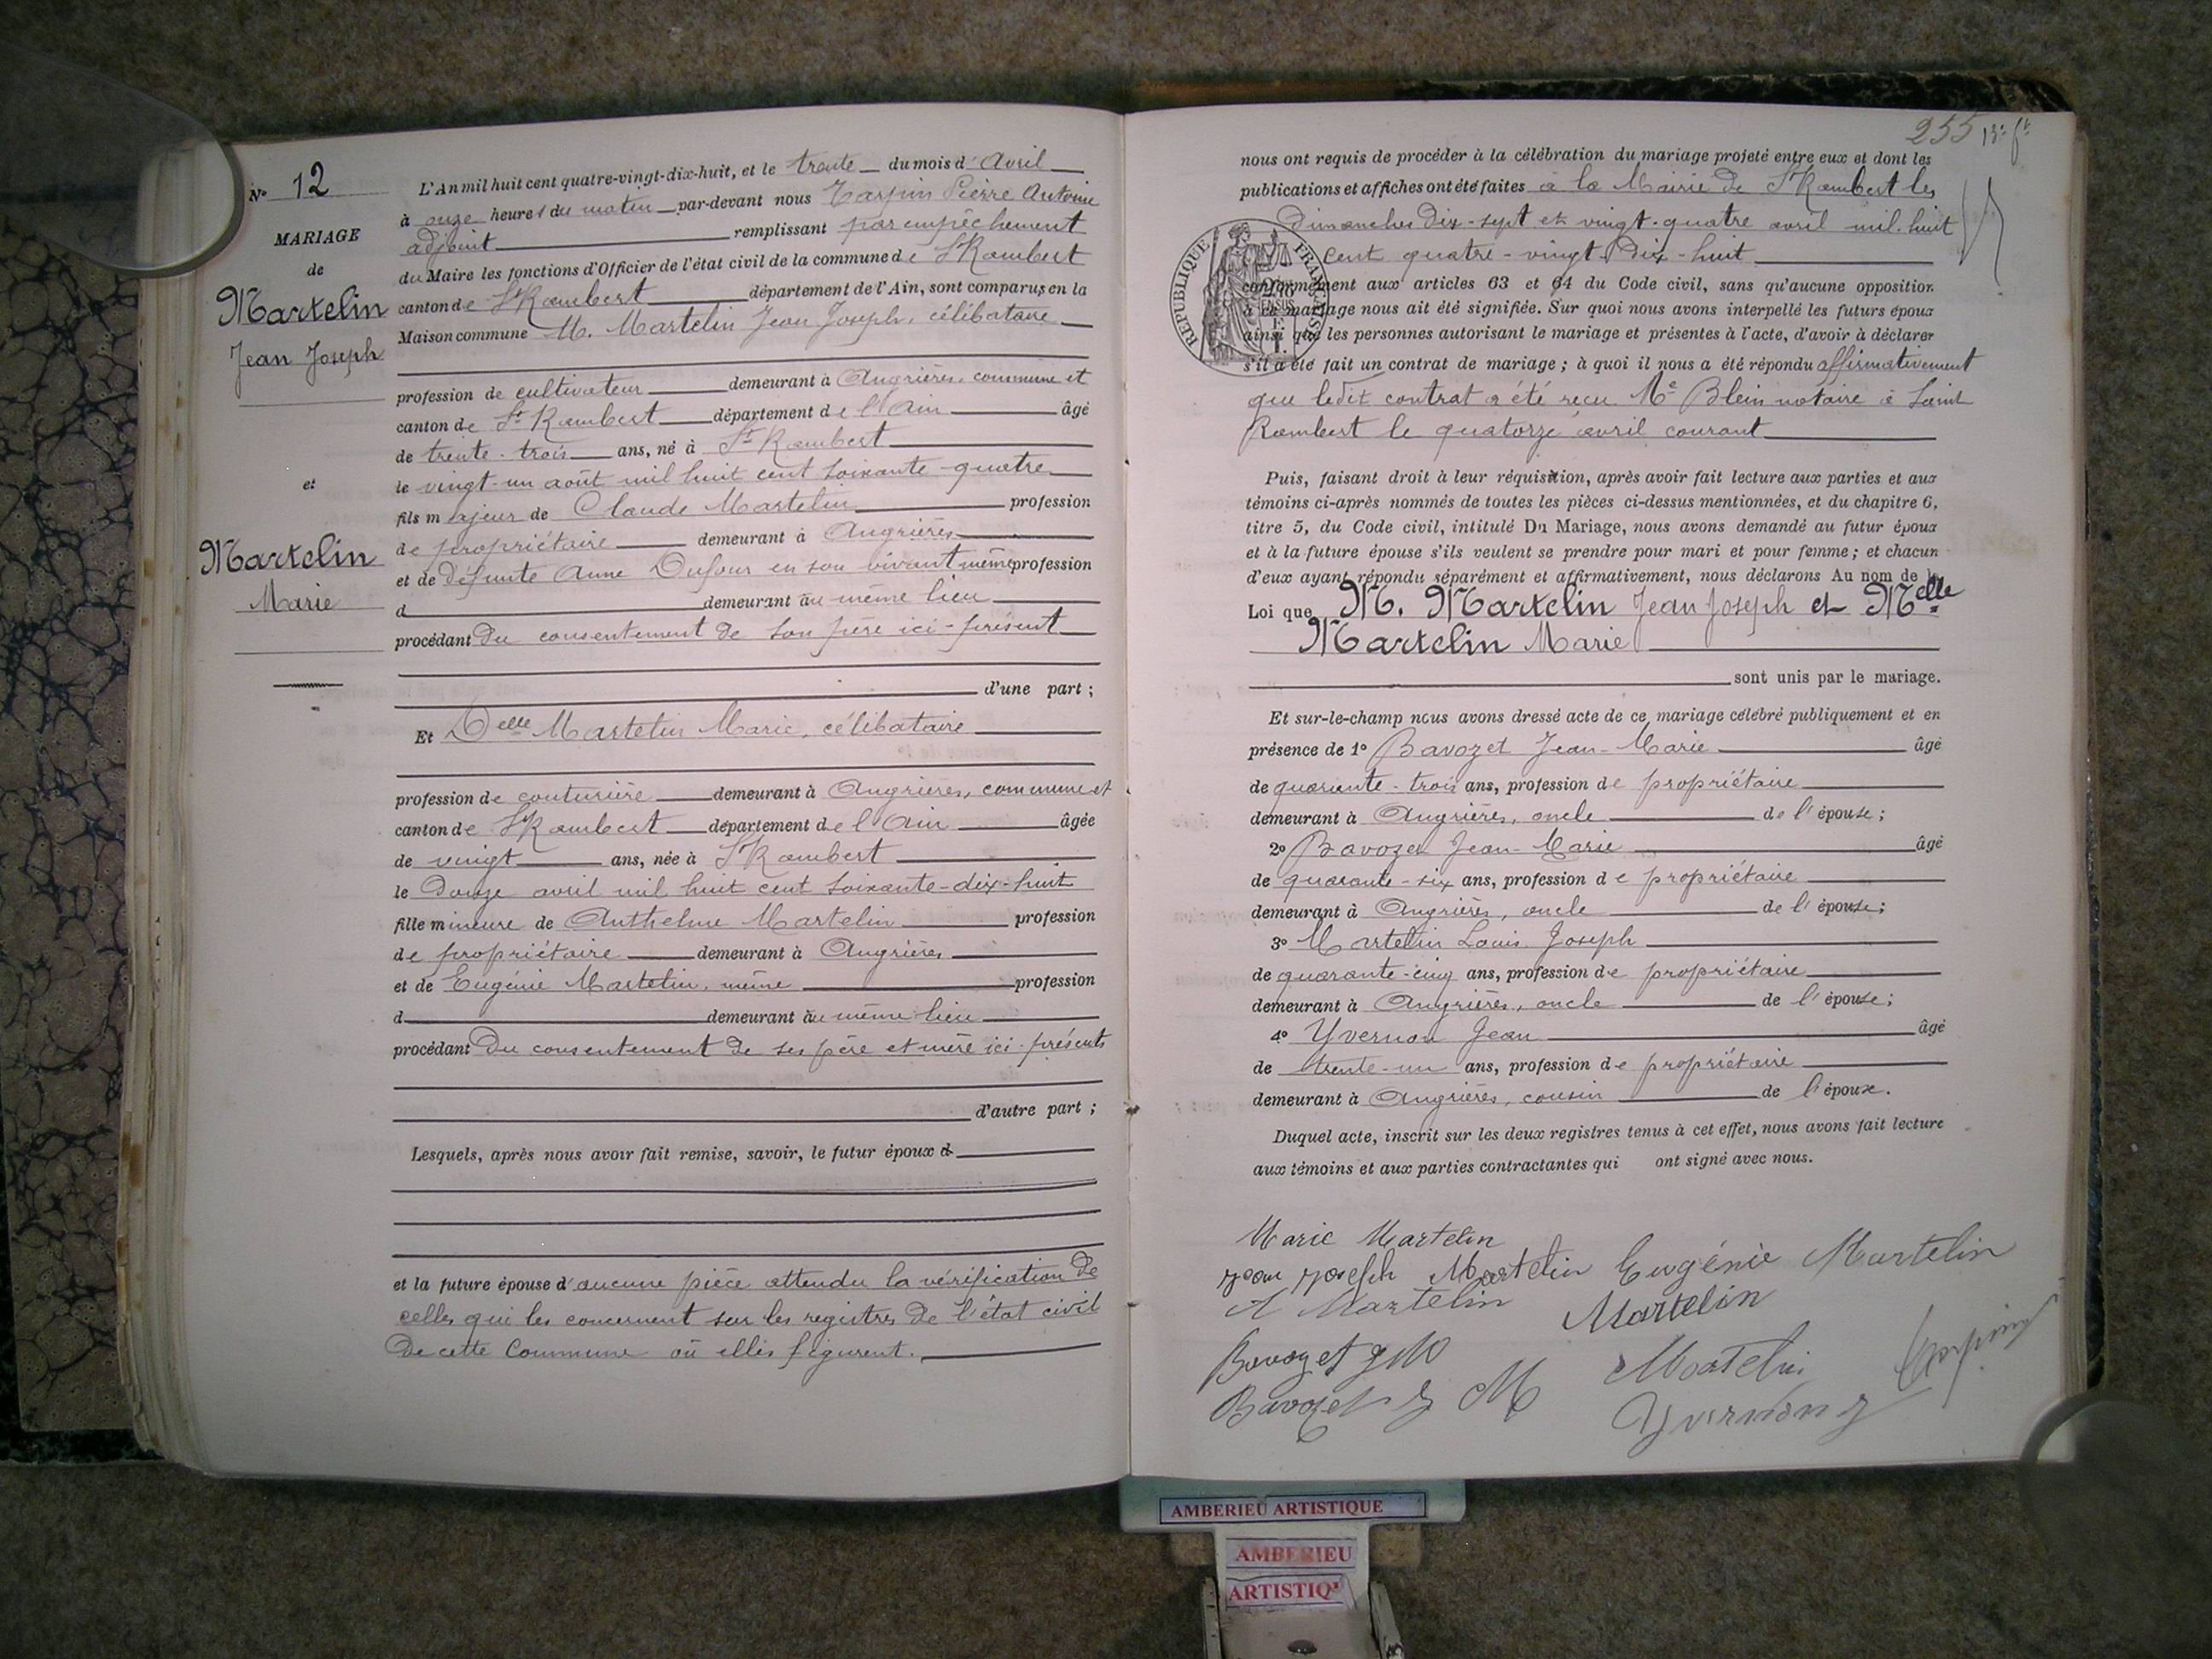 Nº 12
MARIAGE
de
Martelin
Jean Joseph
et
Martelin
Marie
L'An mil huit cent quatre-vingt-dix-huit, et le trente du mois d'Avril
à onze heures du matin par-devant nous Tarpin Pierre Antoine
adjoint remplissant par empêchement
du Maire les fonctions d'Officier de l'état civil de la commune de St Rambert
canton de St Rambert département de l'Ain, sont comparus en la
Maison commune M. Martelin Jean Joseph, célibataire
profession de cultivateur demeurant à Angrières, commune et
canton de St Rambert département de l'Ain âgé
de trente-trois ans, né à St Rambert
le vingt-un août mil huit cent soixante-quatre
fils majeur de Claude Martelin profession
de propriétaire demeurant à Angrières
et de défunte Anne Dufour en son vivant même profession
d demeurant au même lieu
procédant du consentement de son père ici-présent
d'une part ;
Et Delle Martelin Marie, célibataire
profession de couturière demeurant à Angrières, commune et
canton de St Rambert département de l'Ain âgée
de vingt ans, née à St Rambert
le douze avril mil huit cent soixante-dix-huit
fille mineure de Anthelme Martelin profession
de propriétaire demeurant à Angrières
et de Eugénie Martelin, même profession
d demeurant au même lieu
procédant du consentement de ses père et mère ici-présents
d'autre part ;
Lesquels, après nous avoir fait remise, savoir, le futur époux d
et la future épouse d'aucune pièce attendu la vérification de
celles qui les concernent sur les registres de l'état civil
de cette Commune où elles figurent.
255
nous ont requis de procéder à la célébration du mariage projeté entre eux et dont les
publications et affiches ont été faites à la Mairie de St Rambert les
dimanches dix-sept et vingt-quatre avril mil-huit
cent quatre-vingt dix-huit
REPUBLIQUE FRANÇAISE
conformément aux articles 63 et 64 du Code civil, sans qu'aucune opposition
à ce mariage nous ait été signifiée. Sur quoi nous avons interpellé les futurs époux
ainsi que les personnes autorisant le mariage et présentes à l'acte, d'avoir à déclarer
s'il a été fait un contrat de mariage ; à quoi il nous a été répondu affirmativement
que ledit contrat a été reçu Me Blein notaire à Saint
Rambert le quatorze avril courant
Puis, faisant droit à leur réquisition, après avoir fait lecture aux parties et aux
témoins ci-après nommés de toutes les pièces ci-dessus mentionnées, et du chapitre 6,
titre 5, du Code civil, intitulé Du Mariage, nous avons demandé au futur époux
et à la future épouse s'ils veulent se prendre pour mari et pour femme ; et chacun
d'eux ayant répondu séparément et affirmativement, nous déclarons Au nom de la
Loi que M. Martelin Jean Joseph et Melle
Martelin Marie
sont unis par le mariage.
Et sur-le-champ nous avons dressé acte de ce mariage célébré publiquement et en
présence de 1º Bavozet Jean-Marie âgé
de quarante-trois ans, profession de propriétaire
demeurant à Angrières, oncle de l'épouse ;
2º Bavozet Jean-Marie âgé
de quarante-six ans, profession de propriétaire
demeurant à Angrières, oncle de l'épouse ;
3º Martelin Louis Joseph
de quarante-cinq ans, profession de propriétaire
demeurant à Angrières, oncle de l'épouse ;
4º Yvernon Jean âgé
de trente-un ans, profession de propriétaire
demeurant à Angrières, cousin de l'époux.
Duquel acte, inscrit sur les deux registres tenus à cet effet, nous avons fait lecture
aux témoins et aux parties contractantes qui ont signé avec nous.
Marie Martelin
Jean Joseph Martelin Eugénie Martelin
A Martelin Martelin
Bavozet J M Martelin Tarpin
Bavozet J M Yvernon J
AMBERIEU ARTISTIQUE
AMBERIEU
ARTISTIQ